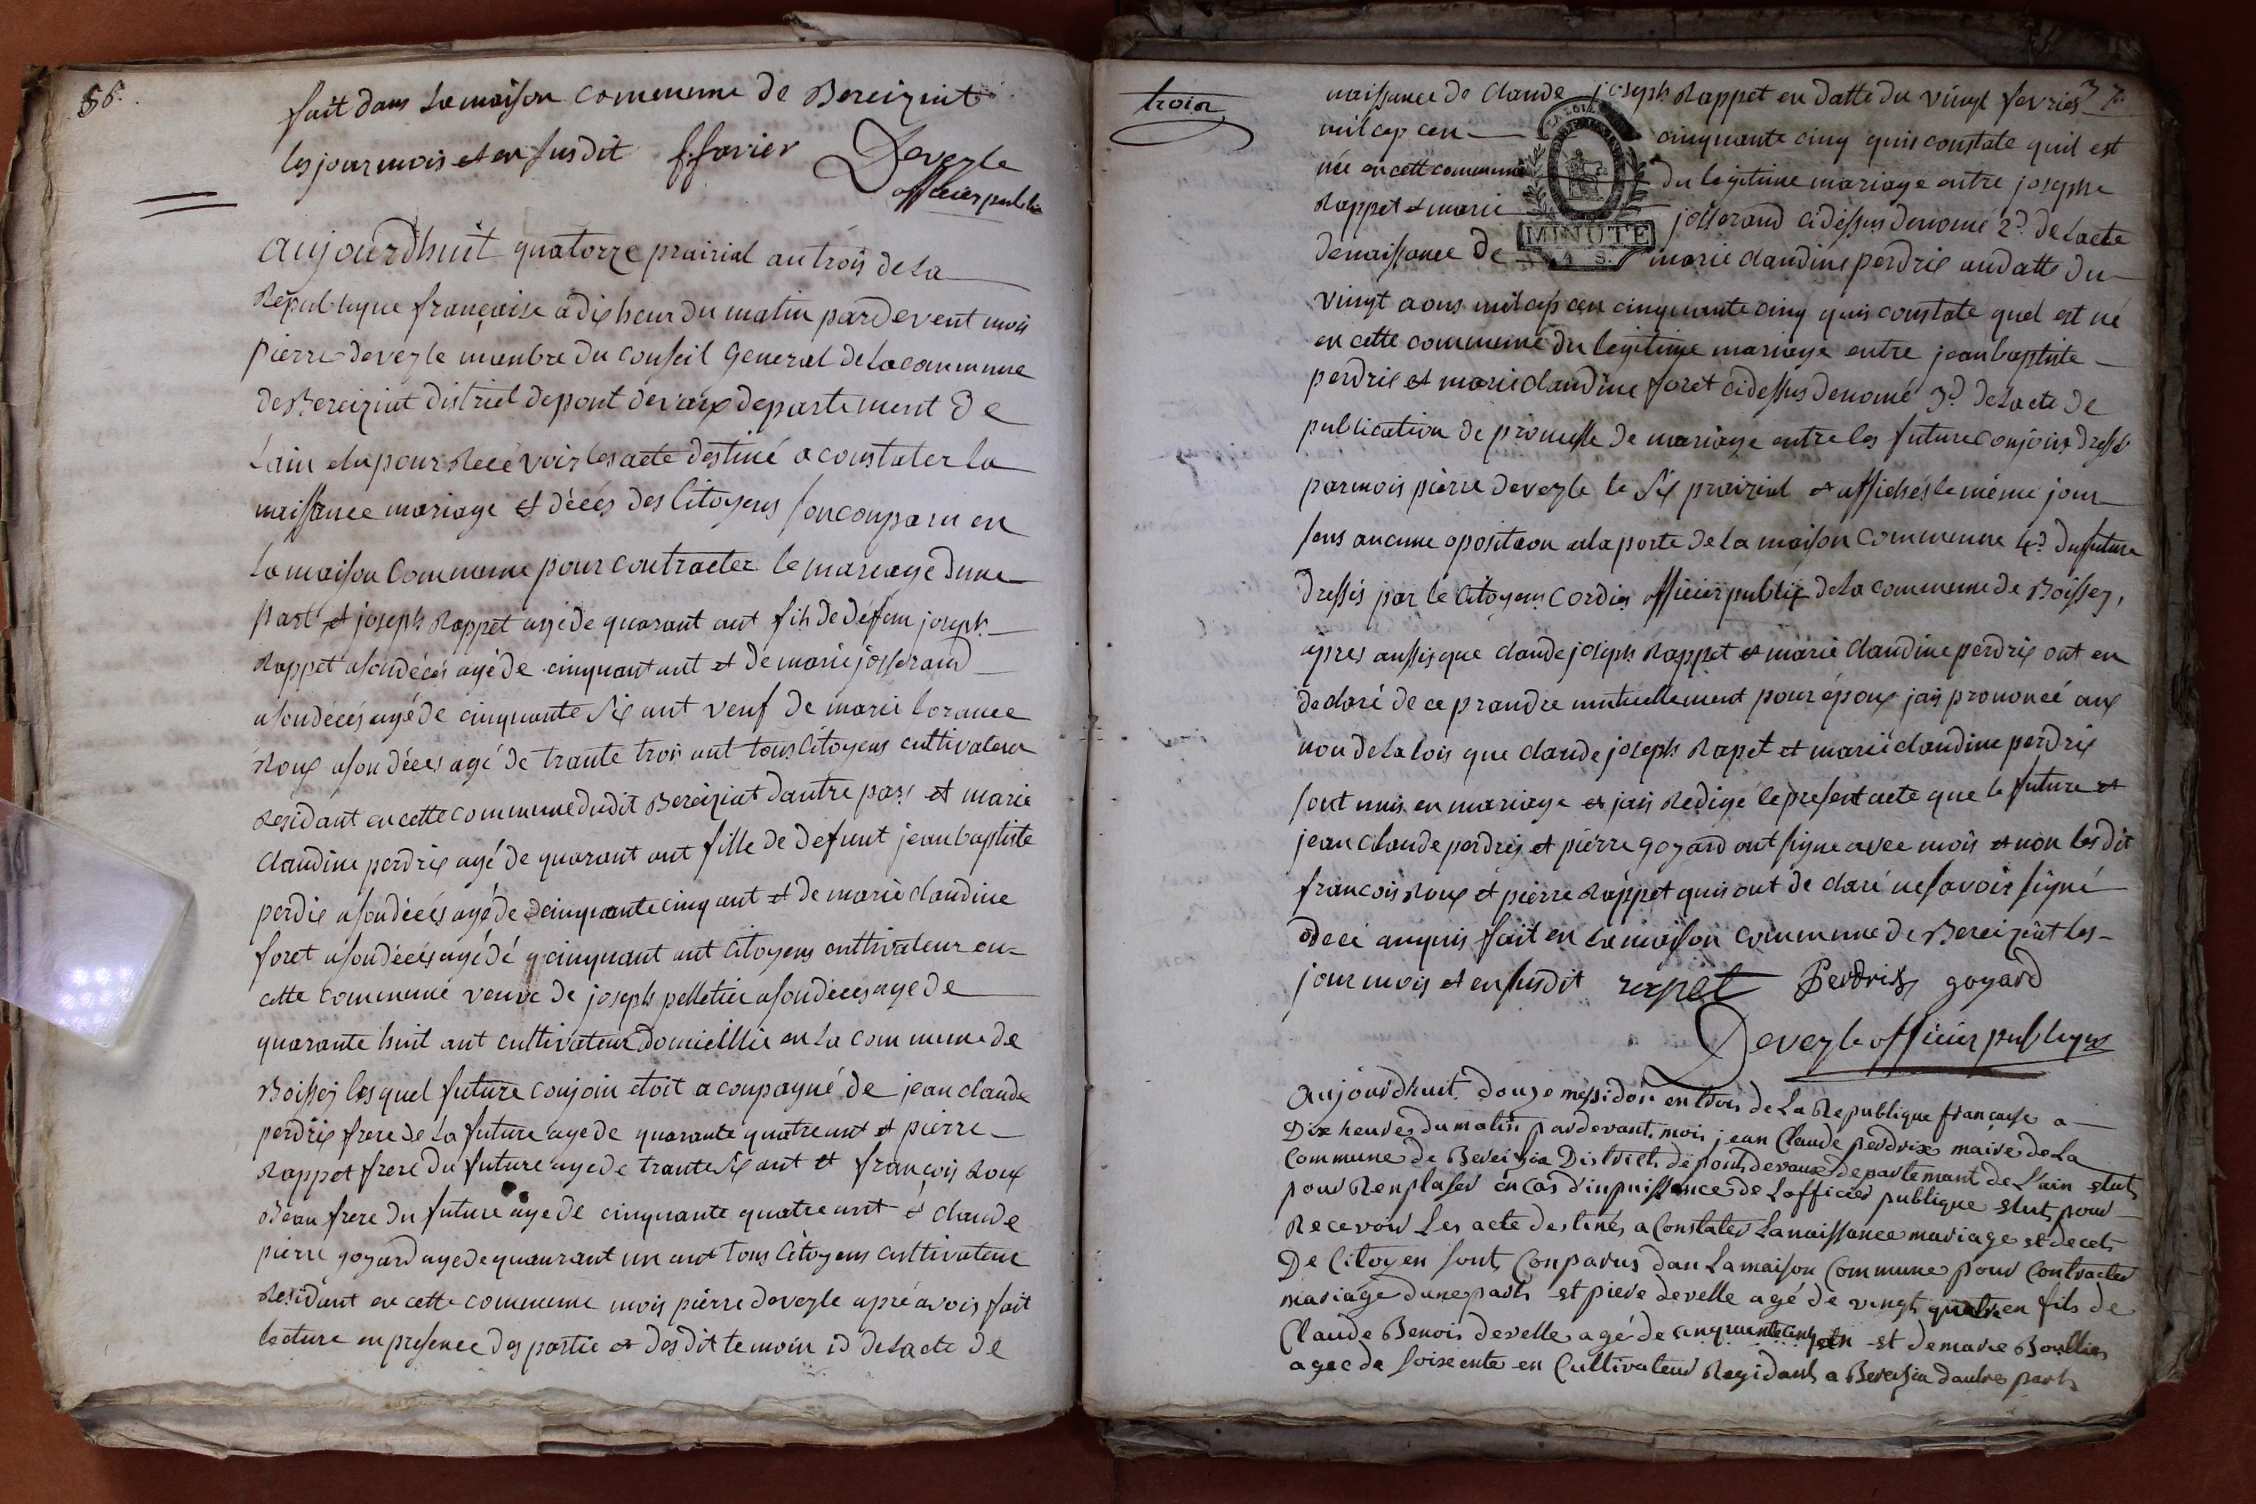 56.
fait dans la maison commeune de Bereiziat
les jour mois et en susdit f. favier Deveyle
officier public
aujourdhuit quatorze prairial an trois de la
Republique française a dix heur du matin pardevent mois
pierre deveyle menbre du conseil general de la commune
de Bereiziat district de pont devaux departement de
Lain elu pour Recévoir les acte destiné a constater la
naissance mariage et décés des Citoyens son conparu en
la maison Commeune pour contracter le mariage dune
part et joseph Rappet agé de quarant ant fils de défun joseph
Rappet a son décés agé de cinquant ant et de marie josserand
a son décés agé de cinquante six ant veuf de marie lorance
Roux a son décés agé de trante trois ant tous Citoyens cultivateur
Residant en cette commune dudit Bereiziat dautre part et marie
claudine perdrix agé de quarant ant fille de defunt jean baptiste
perdix a son décés agé de cinquante cinq ant et de marie claudine
foret a son décés agé dé cinquant ant Citoyens cultivateur en
cette commeune veuve de joseph pelletier a son déces age de
quarante huit ant cultivateur domicillié en la commeune de
Boissey lesquel future conjoin etoit aconpagné de jean claude
perdrix frere de la future age de quarante quatre ant et pierre
Rappet frere du future age de trante six ant et françois Roux
Beau frere du future age de cinquante quatre ant et claude
pierre goyard age de quaurant un ant tous Citoyens cultivateur
Residant en cette commeune mois pierre deveyle apré avois fait
lecture en presence des partie et des dit temoin 1d de lacte de
trois
37.
naissance de Claude joseph Rappet en datte du vingt fevrier
mil cep cen cinquante cinq quis constate quil est
née en cett commeune du legitime mariage entre josephe
Rappet et marie josserand cidessus denomé 2d. de lacte
de naissance de marie claudine perdrix en datte du
MINUTE
4 S.
vingt aous mil cep cen cinquante cinq quis constate quel est né
en cette commeune du legitime mariage entre jean baptiste
perdrix et marie claudine foret cidessus denomé 3d. de lacte de
publication de promesse de mariage entre les future conjoins dressé
par mois pierre deveyle le six prairial et affichés le même jour
sens aucune oposition a la porte de la maison commeune 4d. du future
dressés par le Citoyens Cordier officier public de la commeune de Boissey,
apres aussis que claude joseph Rappet et marie claudine perdrix ont en
declaré de ce prandre mutuellement pour époux jais prononcé aux
non de la lois que claude joseph Rapet et marie claudine perdrix
sont unis en mariage et jais Redigé le present acte que le future et
jean claude perdrix et pierre goyard ont signe avec mois et non les dit
francois Roux et pierre Rappet quis ont declaré ne savoir signé
de ce anquis fait en la maison commeune de Bereiziat les
jour mois et en susdit rapet Perdrix goyard
Deveyle officier publique
Aujourdhuit douze messidor en trois de La Republique française a
Dix heures du matin pardevant mois jean Claude perdrix maire de La
Commune de Bereizia District de pont devaux departemant de Lain elut
pour Renplaser en cas d'inpuissence de Lofficier publique elut pour
Recevoir Les acte destinés a Constater La naissance mariage et decets
De Citoyen sont Conparus dan La maison Commune pour Contracter
mariage dune part et piere develle agé de vingt quatre en fils de
Claude Benois develle agé de cinquante cinq en et de marie Boullier
agee de soixente en Cultivateur Rezidant a Bereizia dautre part